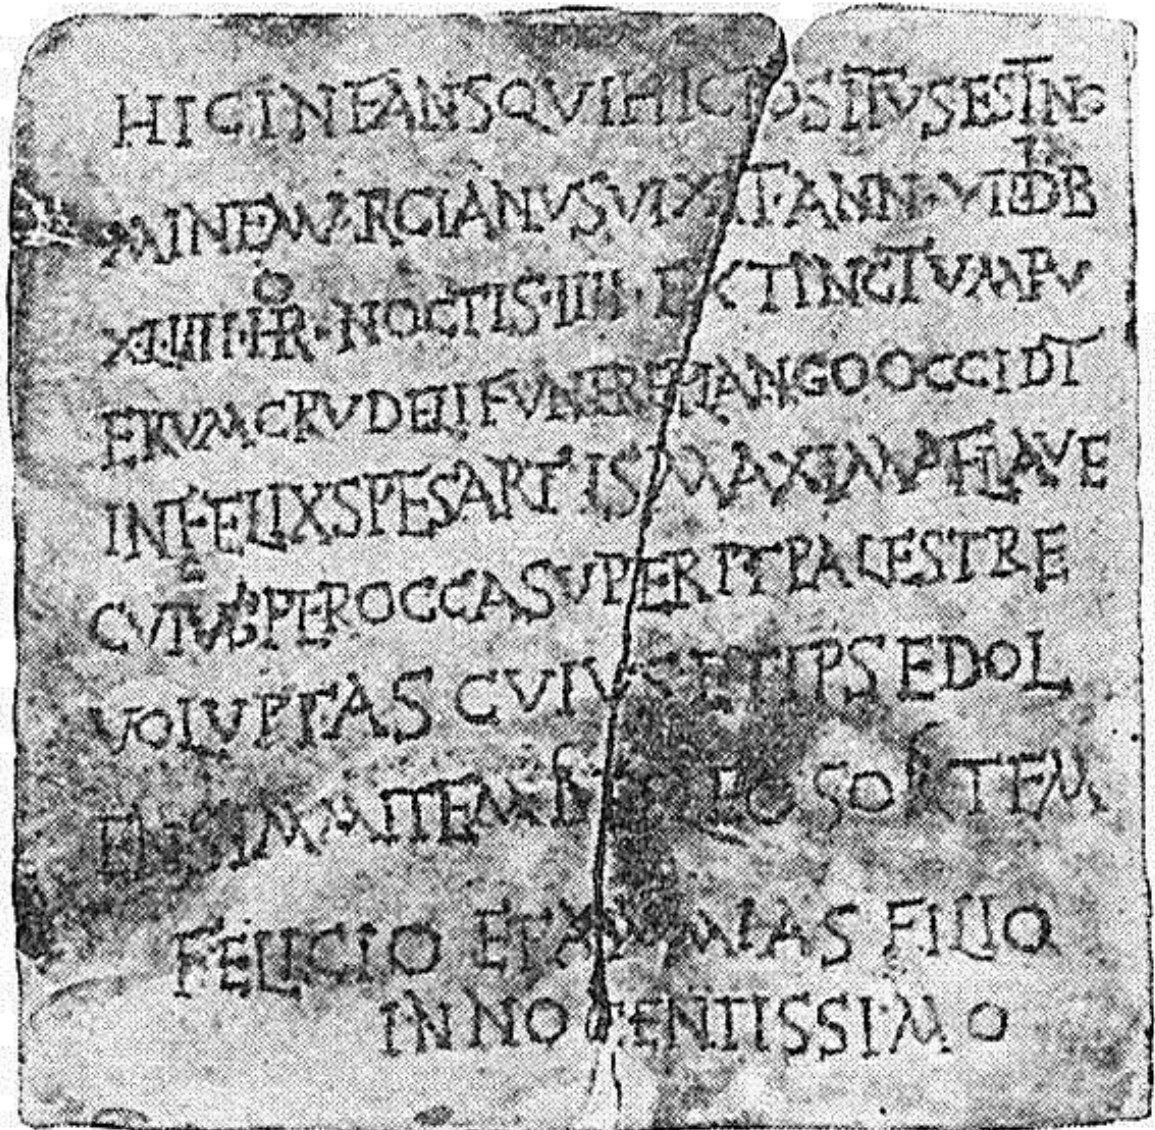 HIC INFANS QVI HIC POSITVS EST NO
MINE MARCIANVS VIXIT ANN VI ET DB
XLIIII HOR NOCTIS IIII EXTINCTVM PV
ERVM CRVDELI FVNERE PLANGO OCCIDIT
INFELIX SPES ARTIS MAXIMA FLAVE
CVIVS PER OCCASV PERIIT PALESTRE
VOLVPTAS CVIVS ET IPSE DOL
SORTEM
FELICIO ET MIAS FILIO
INNOCENTISSIMO